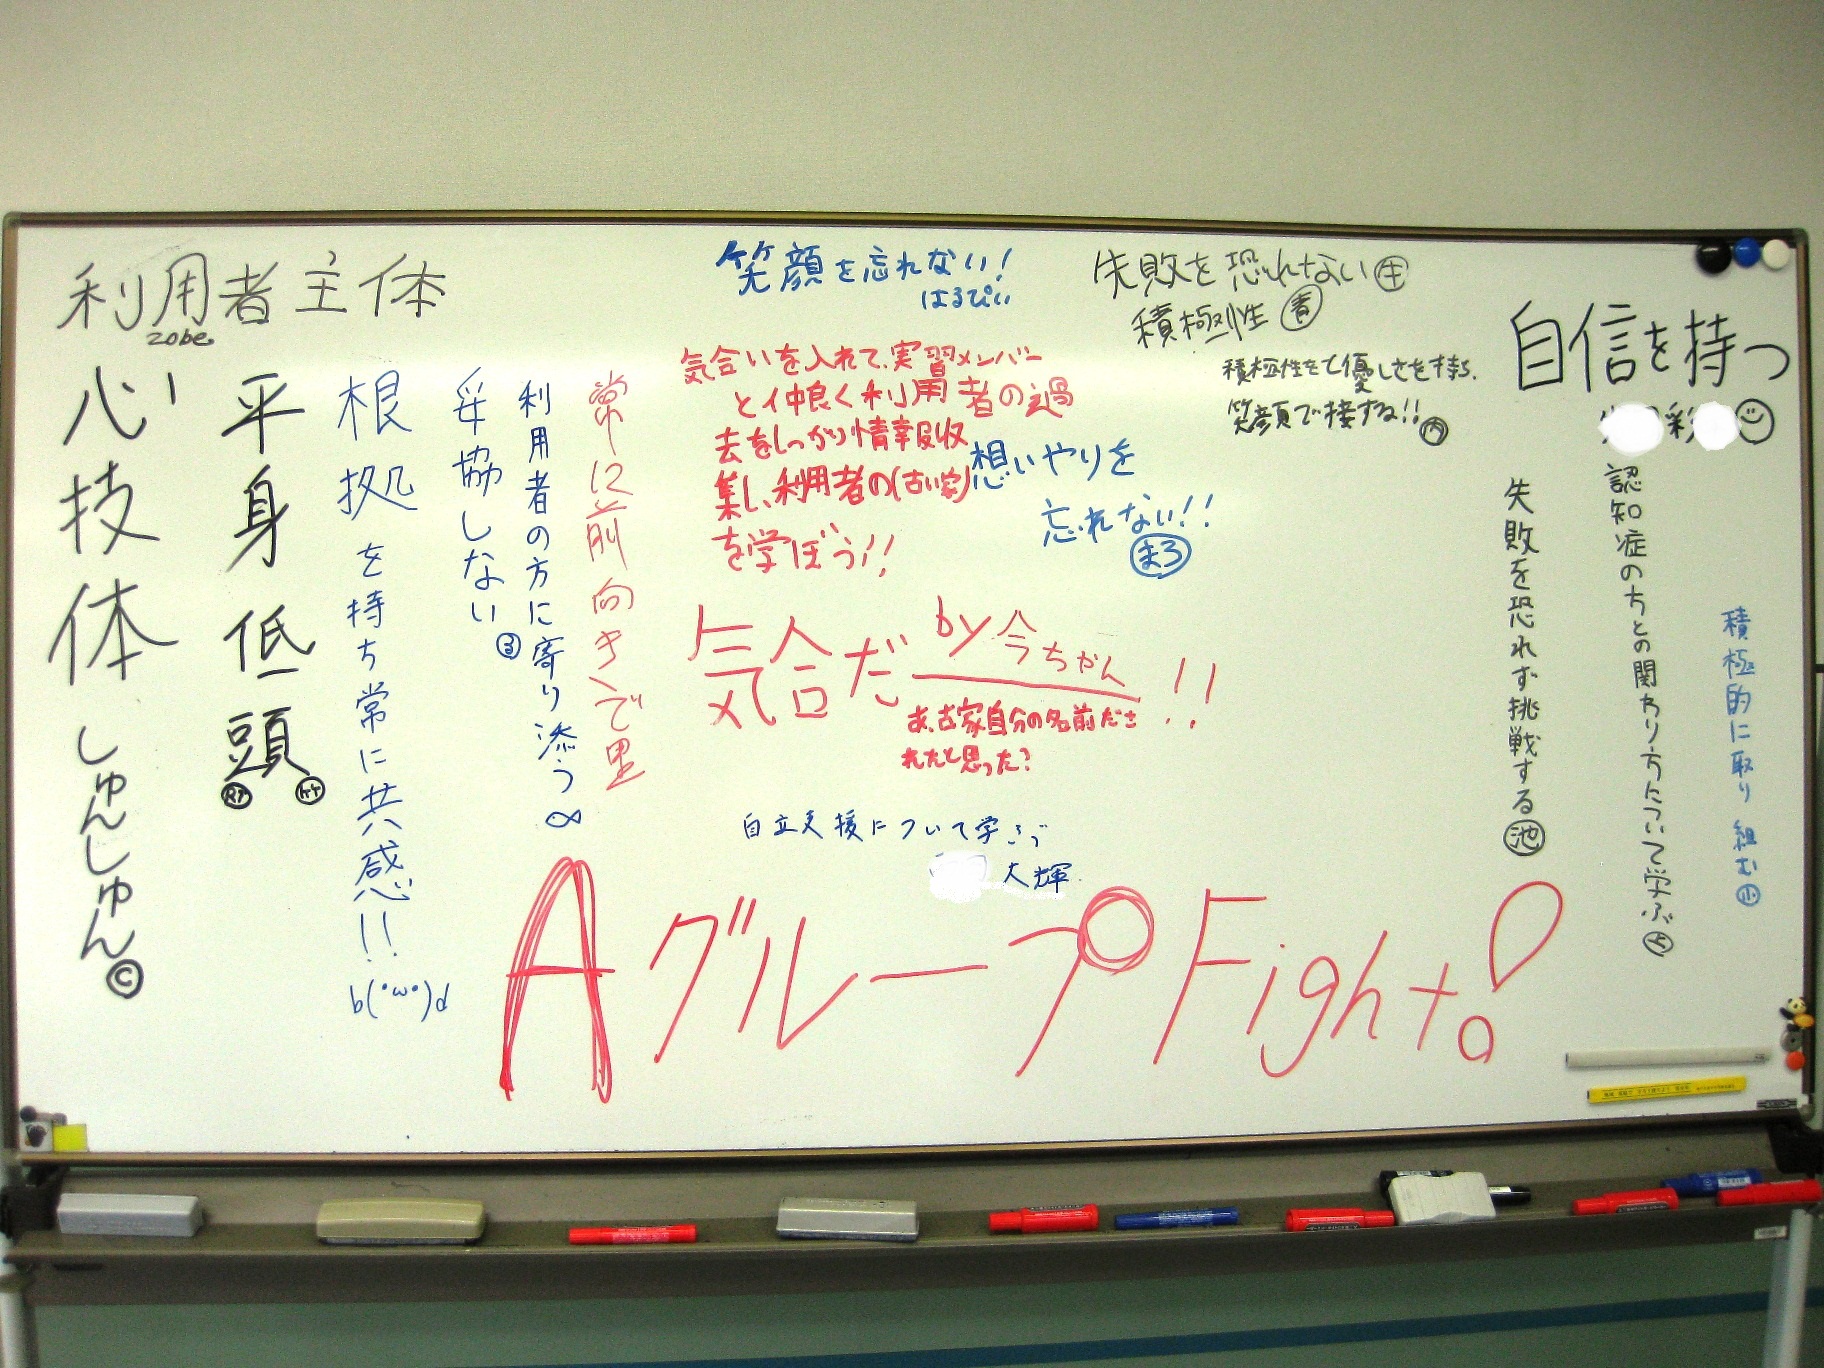 利用者主体
zobe.
心技体 しゅんしゅん©
平身低頭
根拠を持ち常に共感!!
b(・ω・)d
妥協しない
利用者の方に寄り添う∞
常に前向きで
笑顔を忘れない!
はるぴぃ
気合いを入れて、実習メンバー
と仲良く利用者の過
去をしっかり情報収
集し、利用者の(古い家)
を学ぼう!!
想いやりを
忘れない!!
まろ
気合だ by 今ちゃん !!
あ、古家自分の名前ださ
れたと思った?
自立支援について学ぶ
大輝
失敗を恐れない
積極性 青
積極性をて優しさを持ち、
笑顔で接する!! 内
自信を持つ
彩
失敗を恐れず挑戦する 池
認知症の方との関わり方について学ぶ
積極的に取り組む 小
AグループFight!